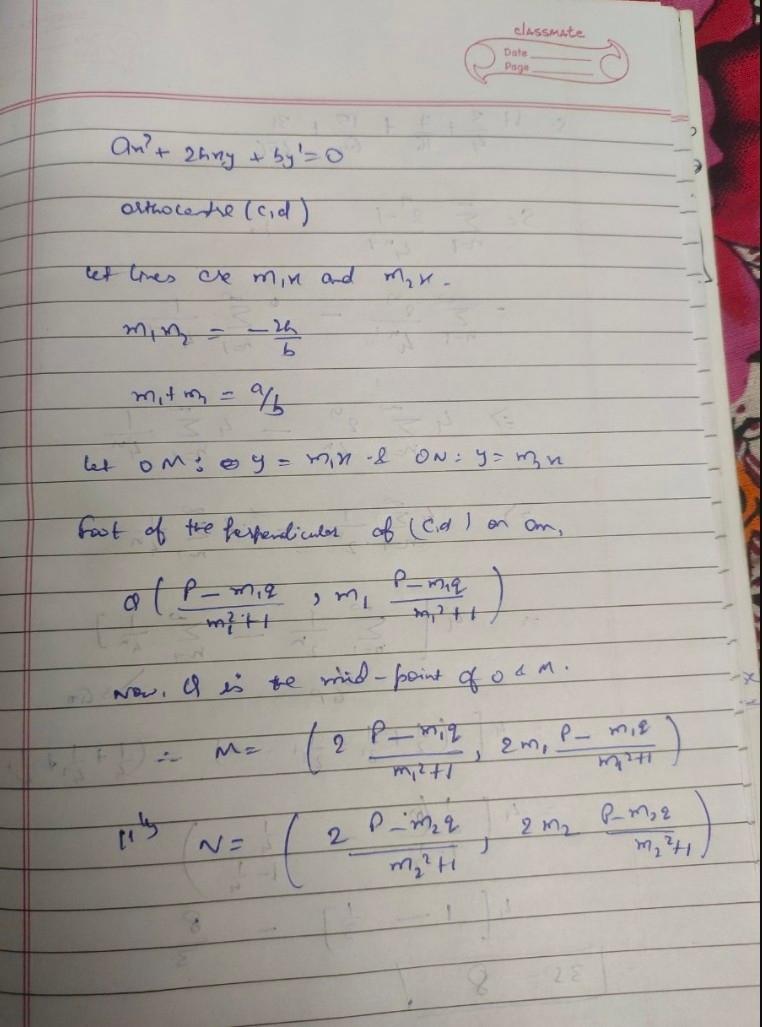 classmate
Date
Page
ax² + 2hxy + by² = 0
orthocentre (c,d)
let lines are m₁x and m₂x.
m₁m₂ = -2h/b
m₁+m₂ = a/b
let OM: y = m₁x & ON: y = m₂x
foot of the perpendicular of (c,d) on om,
Q ( P - m₁q / m₁²+1 , m₁ P - m₁q / m₁²+1 )
Now, Q is the mid-point of O & M.
∴ M = ( 2 P - m₁q / m₁²+1 , 2m₁ P - m₁q / m₁²+1 )
|||ly N = ( 2 P - m₂q / m₂²+1 , 2m₂ P - m₂q / m₂²+1 )